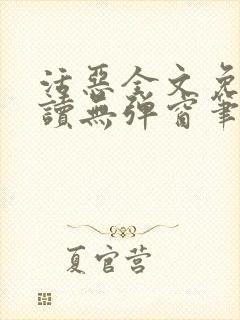 活惡全文免
讀無彈窗筆
夏官营